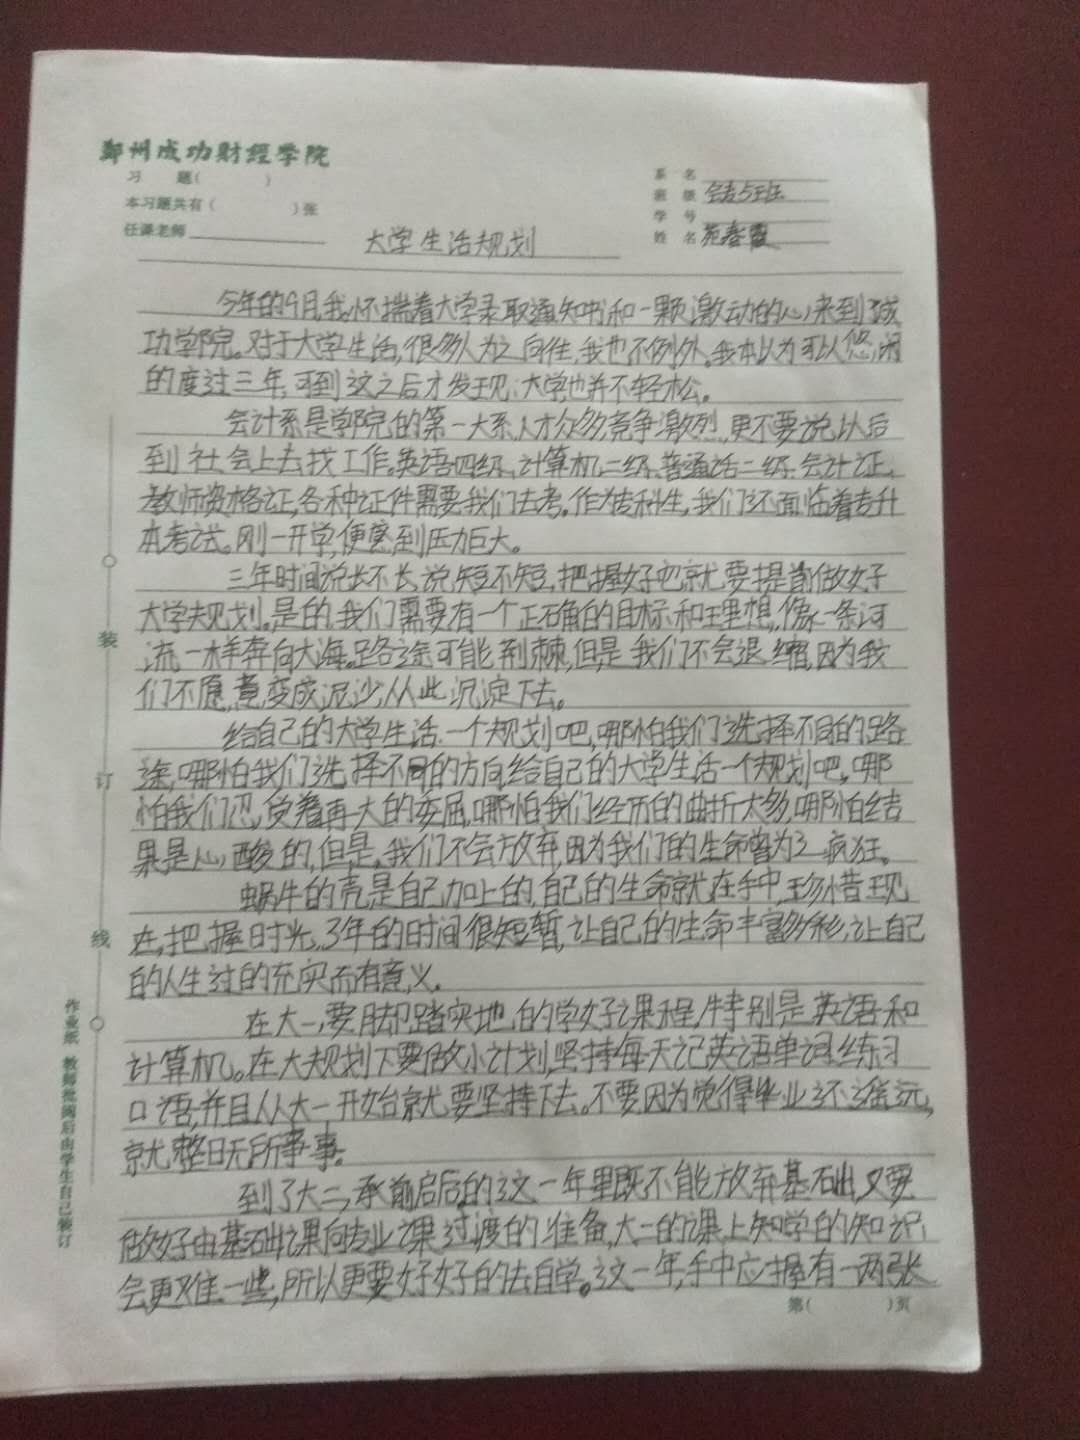 郑州成功财经学院
习 题( )
本习题共有( )张
任课老师
系 名
班 级 会专5班
学 号
姓 名 苑春霞
大学生活规划
今年的9月,我怀揣着大学录取通知书和一颗激动的心,来到成
功学院。对于大学生活,很多人为之向往,我也不例外。我本以为可以悠闲
的度过三年,可到这之后才发现,大学也并不轻松。
会计系是学院的第一大系,人才众多,竞争激烈,更不要说以后
到社会上去找工作。英语四级、计算机二级、普通话二级、会计证、
教师资格证,各种证件需要我们去考。作为专科生,我们还面临着专升
本考试。刚一开学,便感到压力巨大。
三年时间说长不长,说短不短,把握好它就要提前做好
大学规划。是的,我们需要有一个正确的目标和理想,像一条河
流一样奔向大海。路途可能荆棘,但是我们不会退缩,因为我
们不愿意变成泥沙,从此沉淀下去。
给自己的大学生活一个规划吧,哪怕我们选择不同的路
途,哪怕我们选择不同的方向,给自己的大学生活一个规划吧。哪
怕我们忍受着再大的委屈,哪怕我们经历的曲折太多,哪怕结
果是心酸的,但是,我们不会放弃,因为我们的生命曾为之疯狂。
蜗牛的壳是自己加上的,自己的生命就在手中,珍惜现
在,把握时光,3年的时间很短暂,让自己的生命丰富多彩,让自己
的人生过的充实而有意义。
在大一,要脚踏实地的学好课程,特别是英语和
计算机。在大规划下要做小计划,坚持每天记英语单词、练习
口语,并且从大一开始就要坚持下去。不要因为觉得毕业还遥远,
就整日无所事事。
到了大二,承前启后的这一年里既不能放弃基础,又要
做好由基础课向专业课过渡的准备,大二的课上知学的知识
会更难一些,所以更要好好的去自学。这一年,手中应握有一两张
装
订
线
作业纸 教师批阅后由学生自己装订
第( )页